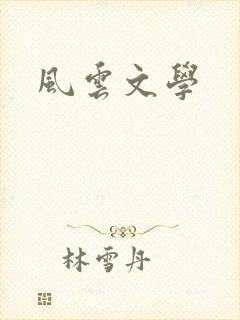 風雲文學
林雪丹